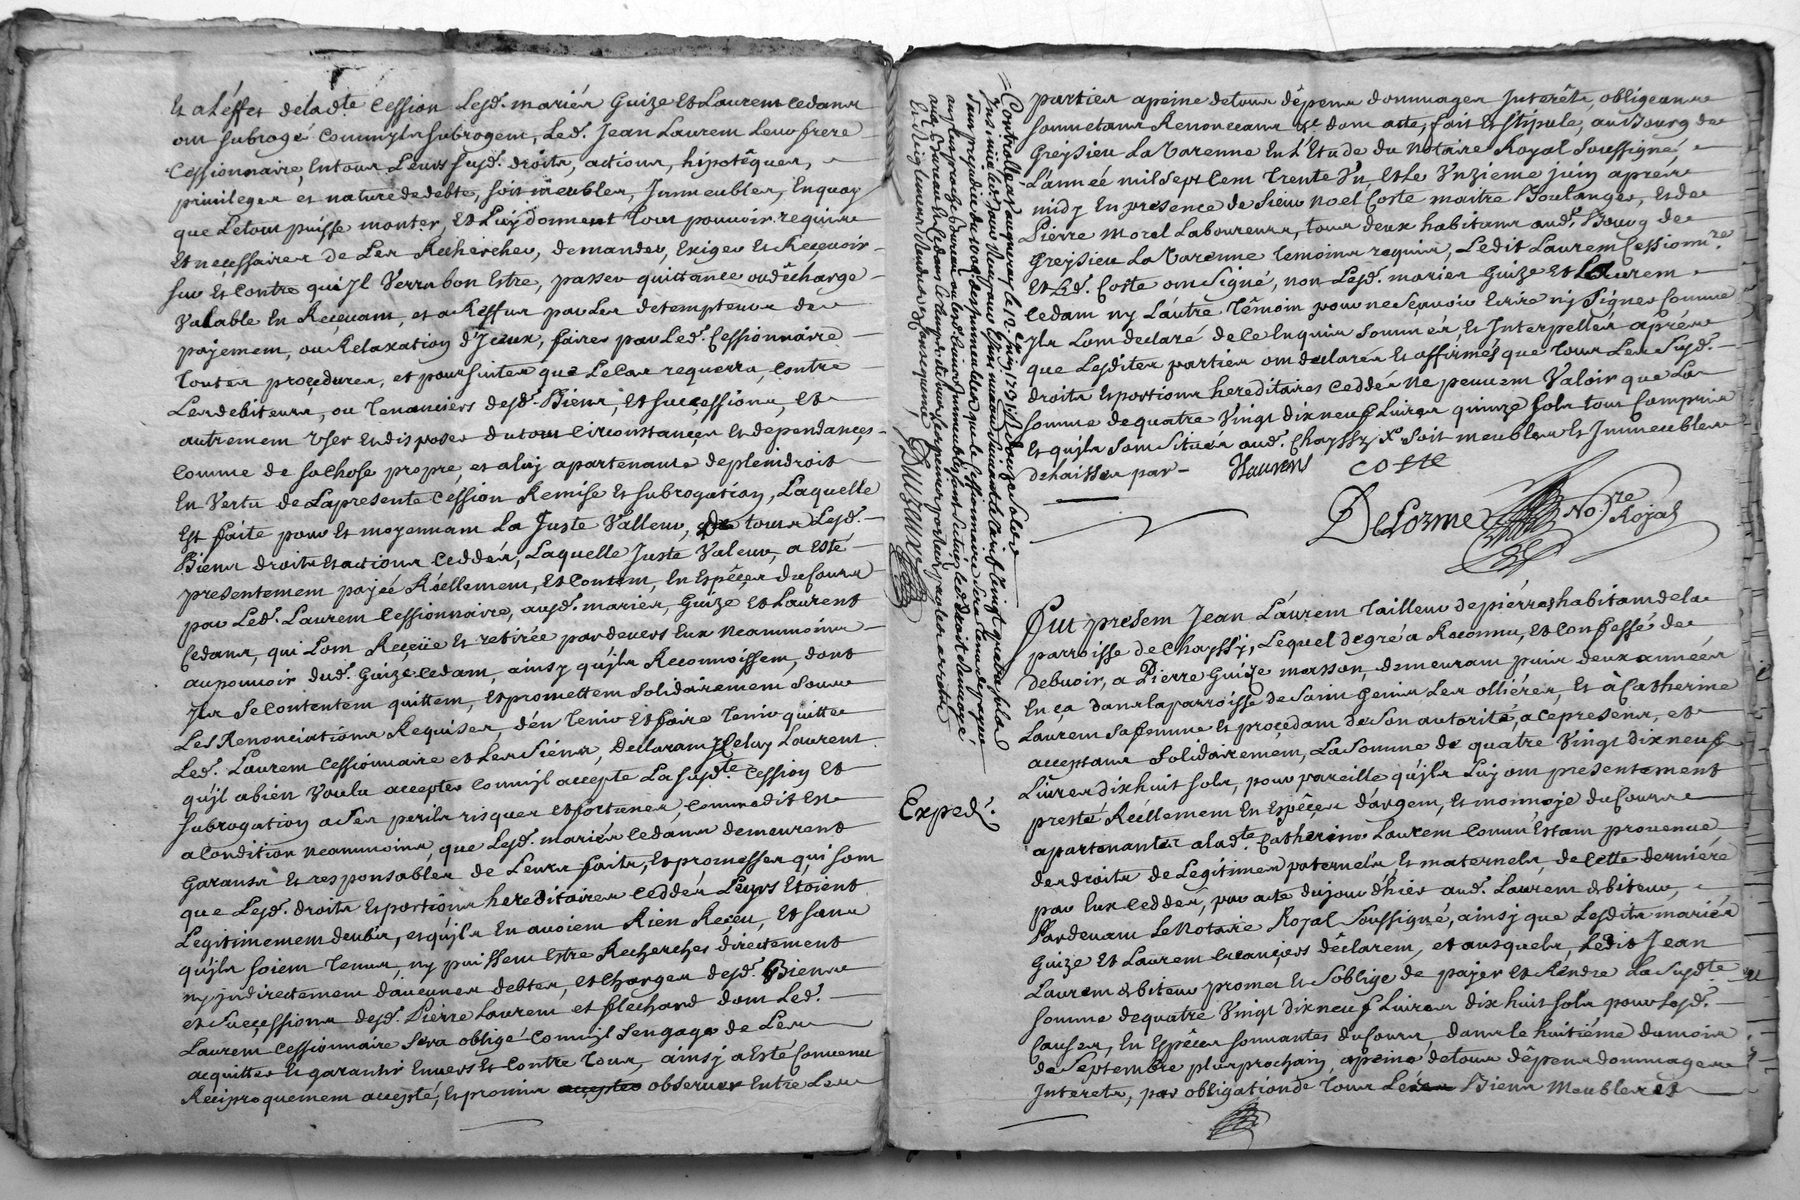 Et a l'effet de lad.te Cession Lesd. mariés Guize Et Laurent cedans
ont subrogé Comm'ils subrogent, Led. Jean Laurent Leur frere
Cessionnaire, En tous Leurs susd. droits, actions, hipotêques,
privileges et nature de debte, soit meubles, Immeubles, En quoy
que Le tout puisse monter, Et Luy donnent Tout pouvoir requis
Et necessaires de Les Rechercher, demander, Exiger et Recevoir
sur Et Contre qui Jl Verra bon Estre, passer quittance ou dêcharge
Valable En Recevant, et a Reffus par Les detempteurs de
payement, ou Relaxation d'Jceux, faires par Led. Cessionnaire
Toutes procedures, et poursuites que Le Cas requerra, Contre
Les debiteurs, ou Tenanciers desd. Biens, Et successions, Et
autrement User Et disposer du tout Circonstances Et dependances
Comme de sa chose propre, et a luy apartenante de plein droit
En Vertu de La presente Cession Remise Et subrogation, Laquelle
Est faite pour Et moyennant La Juste Valleur, de tous Lesd.
Biens droits Et actions Ceddés, Laquelle Juste Valeur, a Esté
presentement payée Réellement, Et Contant, En Espêces du Cours
par Led. Laurent Cessionnaire, ausd. mariés, Guize Et Laurent
Cedans, qui L'ont Reçeüe Et retirée pardevers Eux neammoins
au pouvoir dud. Guize Cedant, ainsy qu'jls Reconnoissent, dont
Jls Se Contentent quittent, Et promettent solidairement sous
Les Renonciations Requises, d'en Tenir Et faire Tenir quitte
Led. Laurent Cessionnaire et Les Siens, declarant Jcelui Laurent
qu'jl a bien Voulu accepter Comm'jl accepte La susd.te Cession Et
subrogation a Ses perils risques Et fortunes, Comme dit Est
a Condition neammoins, que Lesd. mariés Cedans demeurent
Garants Et responsables de Leurs faits, Et promesses qui sont
que Lesd. droits Et portions hereditaires Ceddés Leurs Etoient
Legitimement deubs, et qu'jls En avoient Rien Reçeu, Et sans
qu'jls soient Tenus, ny puissent Estre Recherchés directement
ny jndirectement d'aucunes debtes, Et charges desd. Biens
et Successions desd. Pierre Laurent et flechard dont Led.
Laurent Cessionnaire Sera obligé Comm'jl s'engage de Les
acquitter Et garantir Envers Et Contre Tous, ainsj a Esté Convenu
Reciproquement accepté, Et promis accepter observer Entre Les
parties a peine de tous dêpens dommages Interêts, obligeant
soumettant Renonceant &c. dont acte, fait Et stipulé, au Bourg de
Greysieu La Varenne En L'Etude du Notaire Royal Soussigné,
L'année mil sept Cent Trente Vn, Et Le Vnziême juin après
midy En presence de Sieur Noel Coste maitre Boulanger, Et de
Pierre morel Laboureurs, tous deux habitans aud. Bourg de
Greysieu La Varenne Temoins requis, Ledit Laurent Cessionn.re
Et Led. Coste ont Signé, non Lesd. mariés Guize Et Laurent
Cedant ny L'autre Têmoin pour ne Sçavoir Ecrire ny Signer Comme
Jls L'ont declaré de Ce Enquis sommés, Et Interpellés après
que Lesdites parties ont declarés Et affirmés que Tous Les Susd.
droits Et portions hereditaires Ceddés Ne peuvent Valoir que La
somme de quatre Vingt dix neuf Livres quinze sols tout Compris
Et qu'jls sont Situés aud. Chayssy &c. soit meubles Et Immeubles
dehaisser par
Haurens Coste
DeLorme No.re Royal
= Controllé a Vaugneray le 12.e juin 1731. R. douze sols
DuZaux
Expedi.
Fut present Jean Laurent Tailleur de pierres habitant de la
parroisse de Chayssy, Lequel de gré a Reconnu, Et Confessé de
debvoir, a Pierre Guize masson, demeurant puis deux années
En ça dans la parroisse de Saint Genis Les olliéres, Et à Catherine
Laurent sa femme Et procedant de Son autorité, a ce presens, et
acceptans Solidairement, La Somme de quatre Vingt dix neuf
Livres dix huit sols, pour pareille qu'jls Luy ont presentement
presté Réellement En Espêces d'argent, Et monnoje du Cours
apartenantes a lad.te Catherine Laurent Comm'Estant provenue
des droits de Légitimes paternels Et maternels, de Cette derniére
par Eux Ceddés, par acte du jour d'hier aud. Laurent debiteur,
Pardevant Le Notaire Royal Soussigné, ainsj que Lesdits mariés
Guize Et Laurent Creanciers dêclarent, et ausquels, Ledit Jean
Laurent debiteur promet Et s'oblige de payer Et Rendre La susd.te
somme de quatre Vingt dix neuf Livres dix huit sols, pour Lesd.
Causes, En Espêces sonnantes du Cours, dans le huitiême du mois
de Septembre plus prochain, a peine de tous dêpens dommages
Interets, par obligation de Tous Les Biens Meubles et